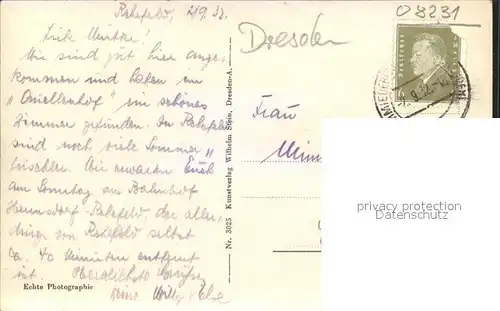 Rehefeld, 2/9.32.
Liebe Mutter!
Wir sind gut hier ange-
kommen und haben im
"Quellenhof" ein schönes
Zimmer gefunden. In Rehefeld
sind noch viele Sommer„
frischler. Wir erwarten Euch
am Sonntag am Bahnhof
Hermsdorf-Rehefeld, der aller„
dings von Rehefeld selbst
ca. 40 Minuten entfernt
ist. Herzlichste
Deine Willy
Echte Photographie
Nr. 3025 Kunstverlag Wilhelm Stein, Dresden-A.
Dresden
08231
Frau
privacy protection
Datenschutz